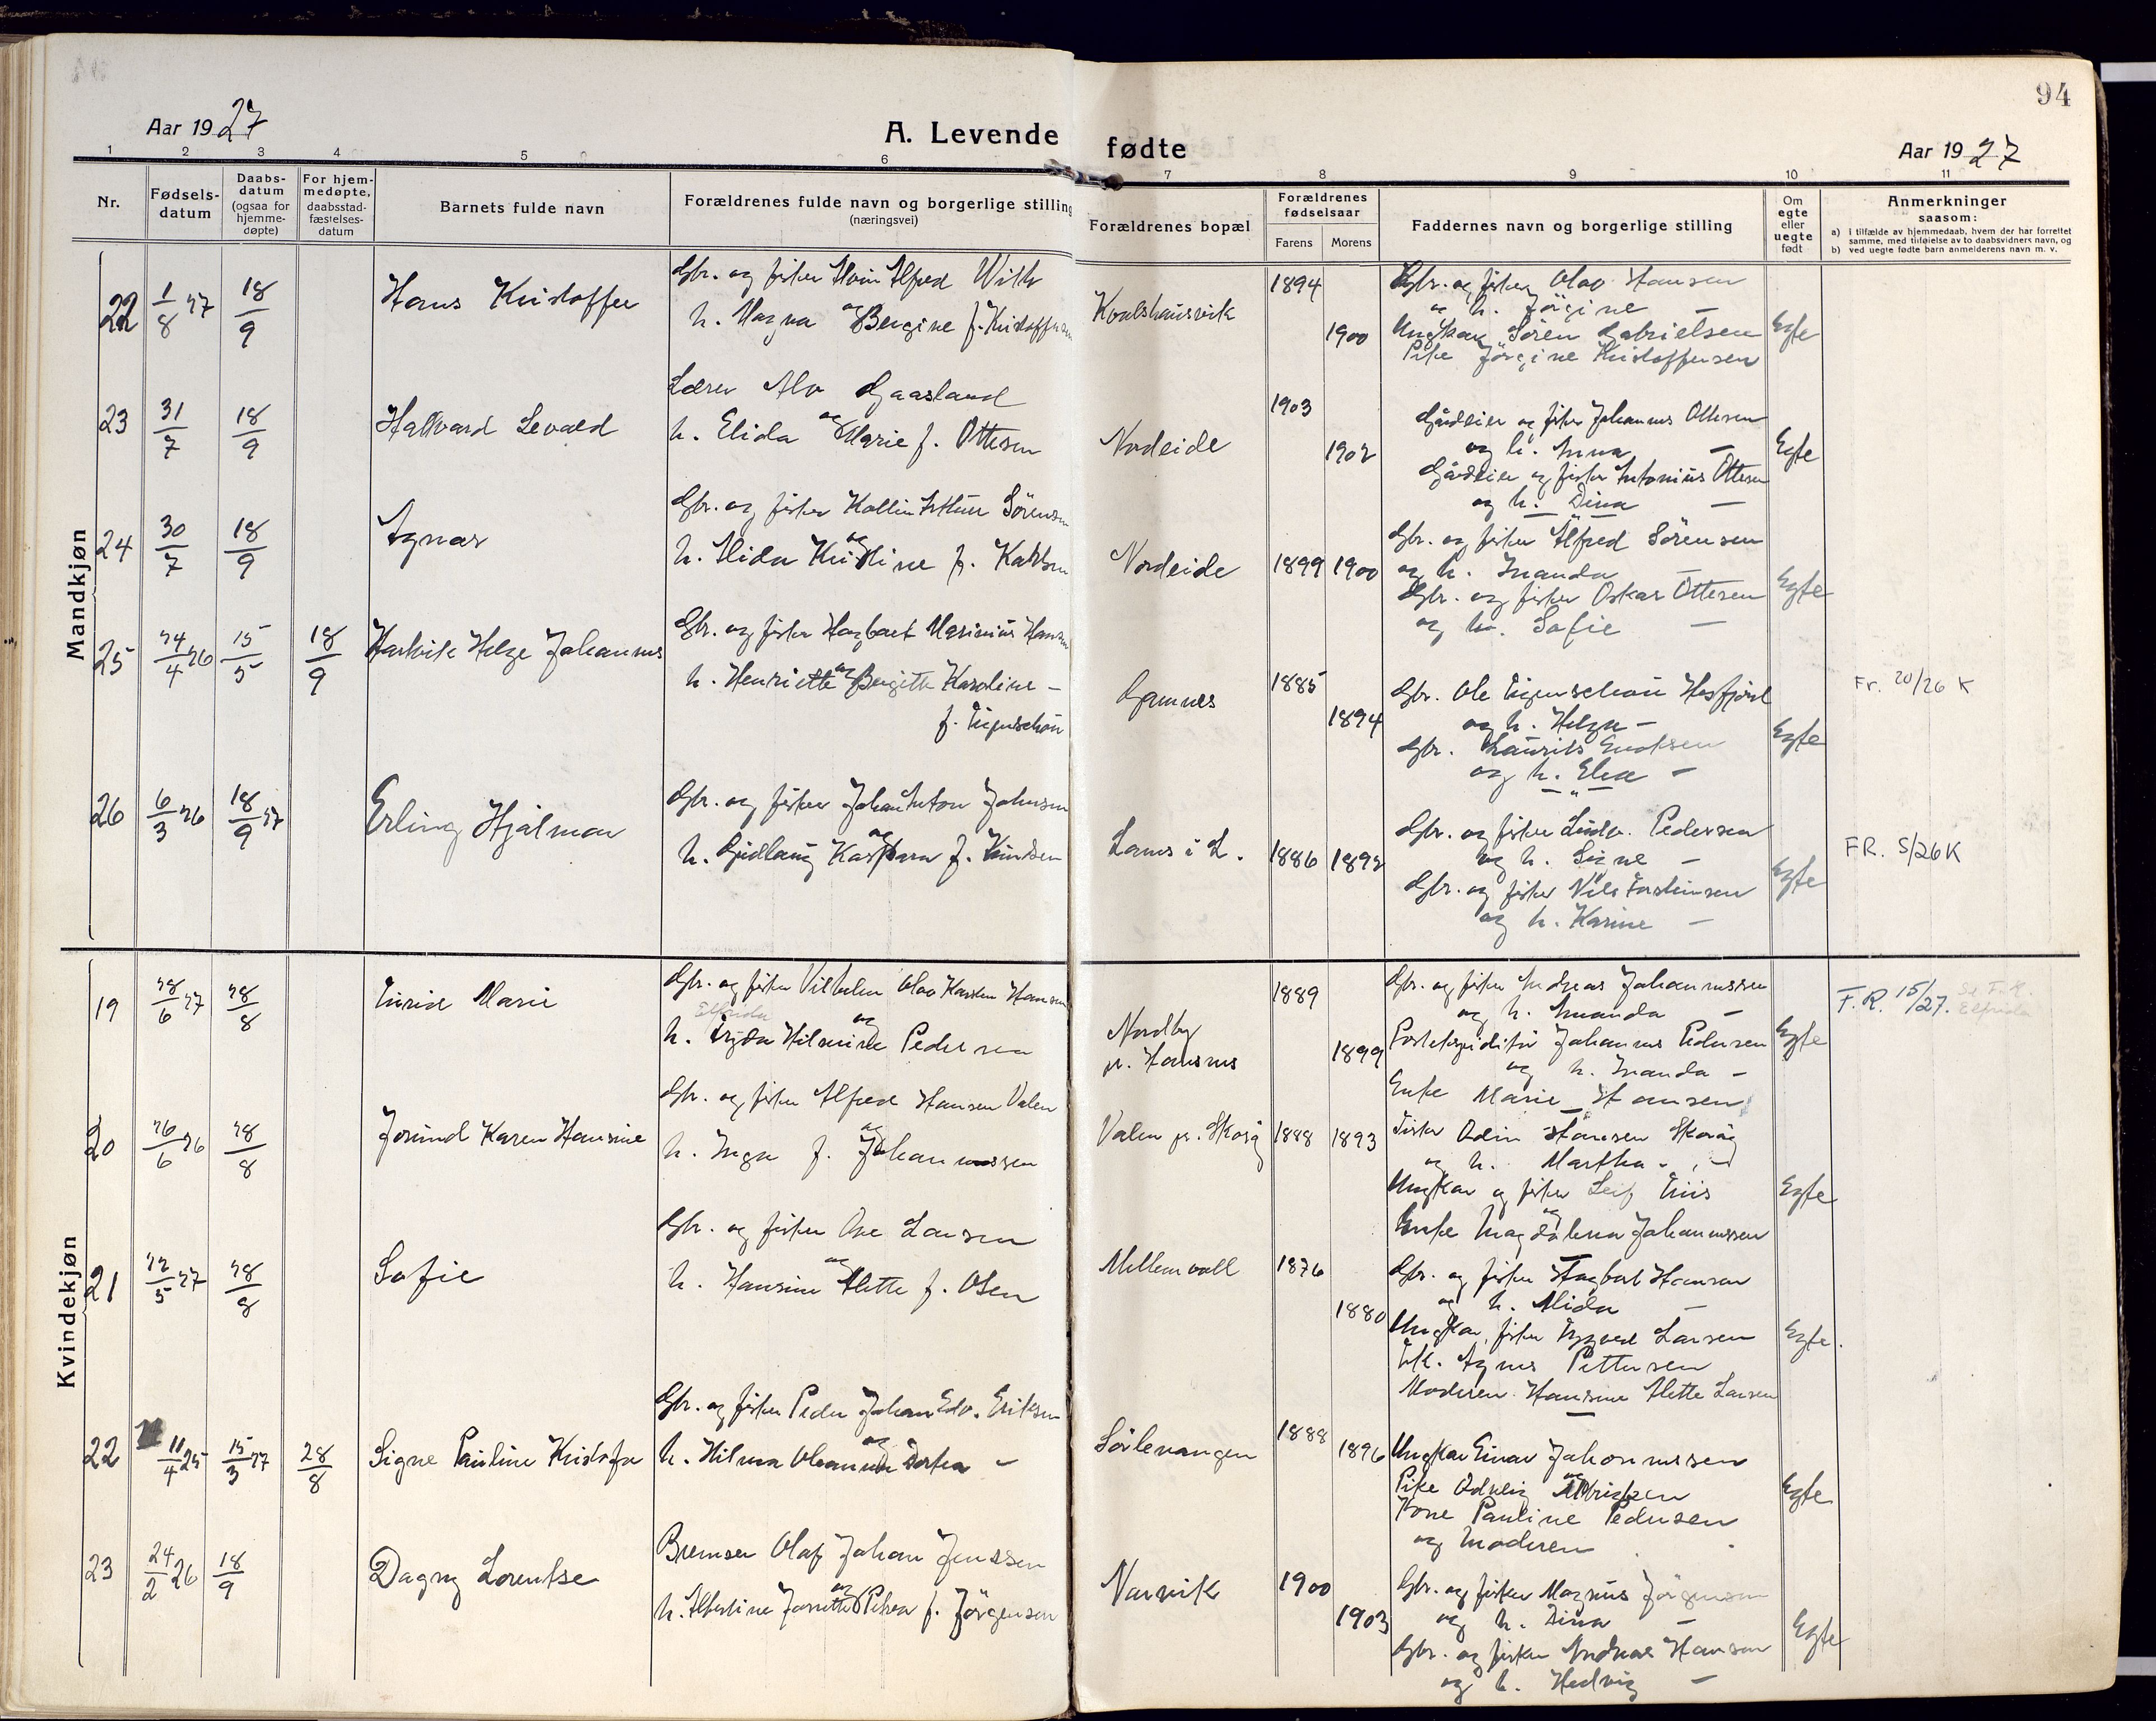 94
Aar 1927
A. Levende fødte
Aar 1927
1 2 3 4 5 6 7 8 9 10 11
Nr.
Fødsels-
datum
Daabs-
datum
(ogsaa for
hjemme-
døpte)
For hjem-
medøpte,
daabsstad-
fæstelses-
datum
Barnets fulde navn
Forældrenes fulde navn og borgerlige stilling
(næringsvei)
Forældrenes bopæl
Forældrenes
fødselsaar
Farens Morens
Faddernes navn og borgerlige stilling
Om
egte
eller
uegte
født
Anmerkninger
saasom:
a) i tilfælde av hjemmedaab, hvem der har forrettet
samme, med tilføielse av to daabsvidners navn, og
b) ved uegte fødte barn anmelderens navn m. v.
Mandkjøn
22 1/8 27 18/9
Hans Kristoffer
Gbr. og fisker Alvin Alfred With
og
h. Magna Bergine f. Kristoffersen
1894
1900
Gbr. og fisker Olav Hansen
og h. Jörgine —
Ungkar Sören Gabrielsen
Pike Jörgine Kristoffersen
Egte
23 31/7 18/9
Hallvard Sevald
Lærer Alv Gaasland
og
h. Elida Marie f. Ottesen
Nordeide
1903
1902
Gårdeier og fisker Johannes Ottesen
og h. Anna —
Gårdeier og fisker Antonius Ottesen
og h. Dina —
Egte
24 30/7 18/9
Agnar
Gbr. og fisker Kollin Arthur Sörensen
og
h. Alida Kristine f.
Nordeide
1899 1900
Gbr. og fisker Alfred Sörensen
og h. Inanda —
Gbr. og fisker Oskar Ottesen
og h. Sofie —
Egte
25 24/4 26 15/5 18/9
Helge Johannes
Gbr. og fisker Hagbart Marinius Hansen
og
h. Henriette Bergitte Karoline —
f.
Gamnes
1885
1894
Gbr. Ole
og h. Helga —
Gbr. Laurits Enoksen
og h. Elise —
Egte
Fr. 20/26 K
26 6/3 26 18/9 27
Erling Hjalmar
Gbr. og fisker Johan Anton Johnsen
og
h. Gudlaug Kaspara f. Knudsen
Lanes i L.
1886 1892
Gbr. og fisker Ludv. Pedersen
og h. Signe —
Gbr. og fisker Nils Torsteinsen
og h. Karine —
Egte
FR. 5/26 K
Kvindekjøn
19 28/6 27 28/8
Turid Marie
Gbr. og fisker Vilhelm Olav Karsten Hansen
Elfrida
og
h. Fryda Hilmine Pedersen
Nordby
pr. Hansnes
1889
1899
Gbr. og fisker Andreas Johannessen
og h. Amanda —
Postekspeditör Johannes Pedersen
og h. Inanda —
Enke Marie Hansen
Egte
F.R. 15/27.
Elfrida
20 26/6 26 28/8
Jorund Karen Hansine
Gbr. og fisker Alfred Hansen Valen
og
h. Inga f. Johannessen
Valen pr. Skorög
1888 1893
Fisker Odin Hansen
og h. Martha —
Ungkar og fisker Leif
og
Enke Magdalena Johannessen
Egte
21 12/5 27 28/8
Sofie
Gbr. og fisker Ove Larsen
og
h. Hansine Alette f. Olsen
Mellemvoll
1876
1880
Gbr. og fisker Hagbart Hansen
og h. Alida —
Ungkar, fisker Trygve Larsen
Frk. Agnes Pettersen
Moderen Hansine Alette Larsen
Egte.
22 11/4 25 15/3 27 28/8
Signe Pauline Kristofa
Gbr. og fisker Peder Johan Edv. Eriksen
og
h. Hilma Oleanna Dorthea —
1888
1896
Ungkar Einar Johannessen
Pike Odveig
Kone Pauline Pedersen
og Moderen
Egte
23 24/2 26 18/9
Dagny Lorentse
Bremser Olaf Johan Jenssen
og
h. Albertine Josette Petrea f. Jörgensen
Narvik
1900
1903
Gbr. og fisker Magnus Jörgensen
og h. Dina —
Gbr. og fisker Andreas Hansen
og h. Hedvig —
Egte